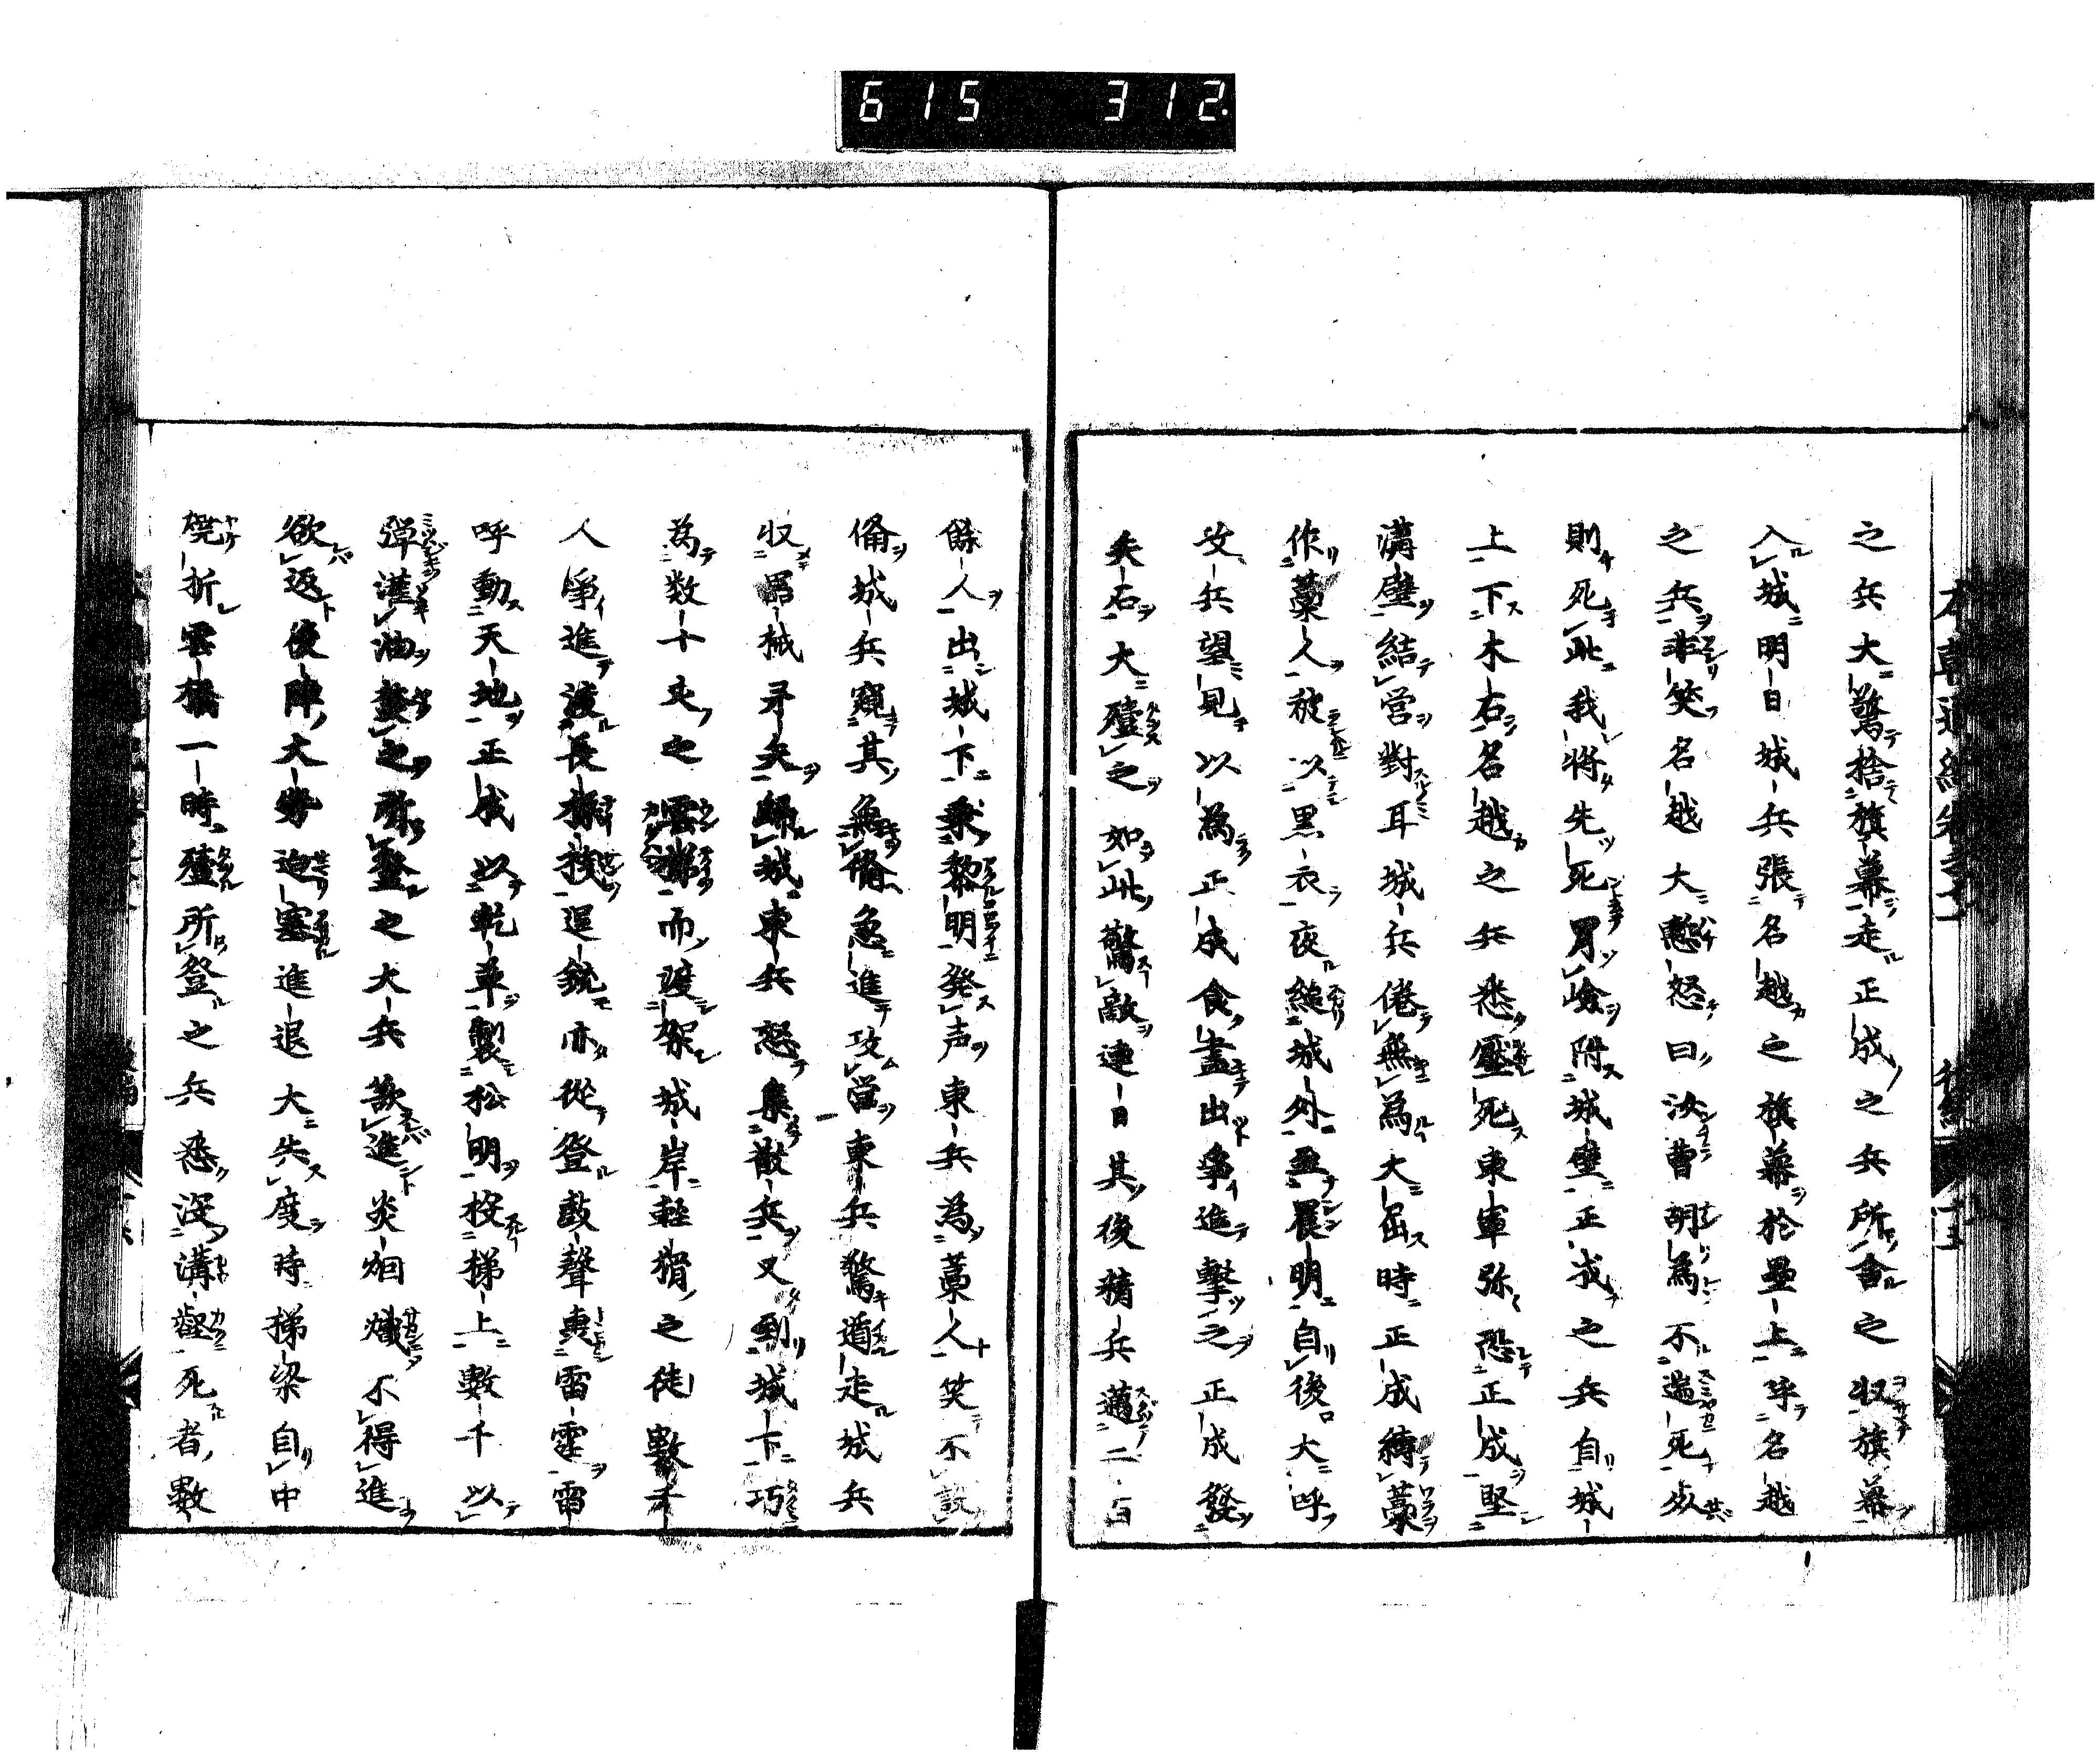 615 312.
之兵大驚捨旗幕走正成之兵所舎之収旗幕
入城明日城兵張名越之旗幕於壘上呼名越
之兵非笑名越大慙怒曰汝曹胡為不遄死㱕
則死此我将先死冒嶮附城壁正成之兵自城
上下木石名越之兵悉壓死東軍弥恐正成堅
溝壁結営對耳城兵倦無為大屈時正成縛藁
作藁人被以黒衣夜縋城外亜晨明自後大呼
攻兵望見以為正成食盡出争進擊之正成發
矢石大殪之如此驚敵連日其後精兵邁二百
餘人出城下乗黎明発声東兵為藁人笑不設
備城兵窺其無備急進攻営東兵驚遁走城兵
収噐械矛矢歸城東兵怒集散兵又到城下巧
為数十丈之雲梯而渡架城岸軽猾之徒數千
人爭進渡長槊挟逞銃亦從登鼓聲輿雷霆雷
呼動天地正成以乾草製松明投梯上數千以
弾灌油焚之所登之大兵欲進炎烟熾不得進
欲返使陣大勢迫塞進退大失度時梯梁自中
焼折雲橋一時殪所登之兵悉没溝壑死者數